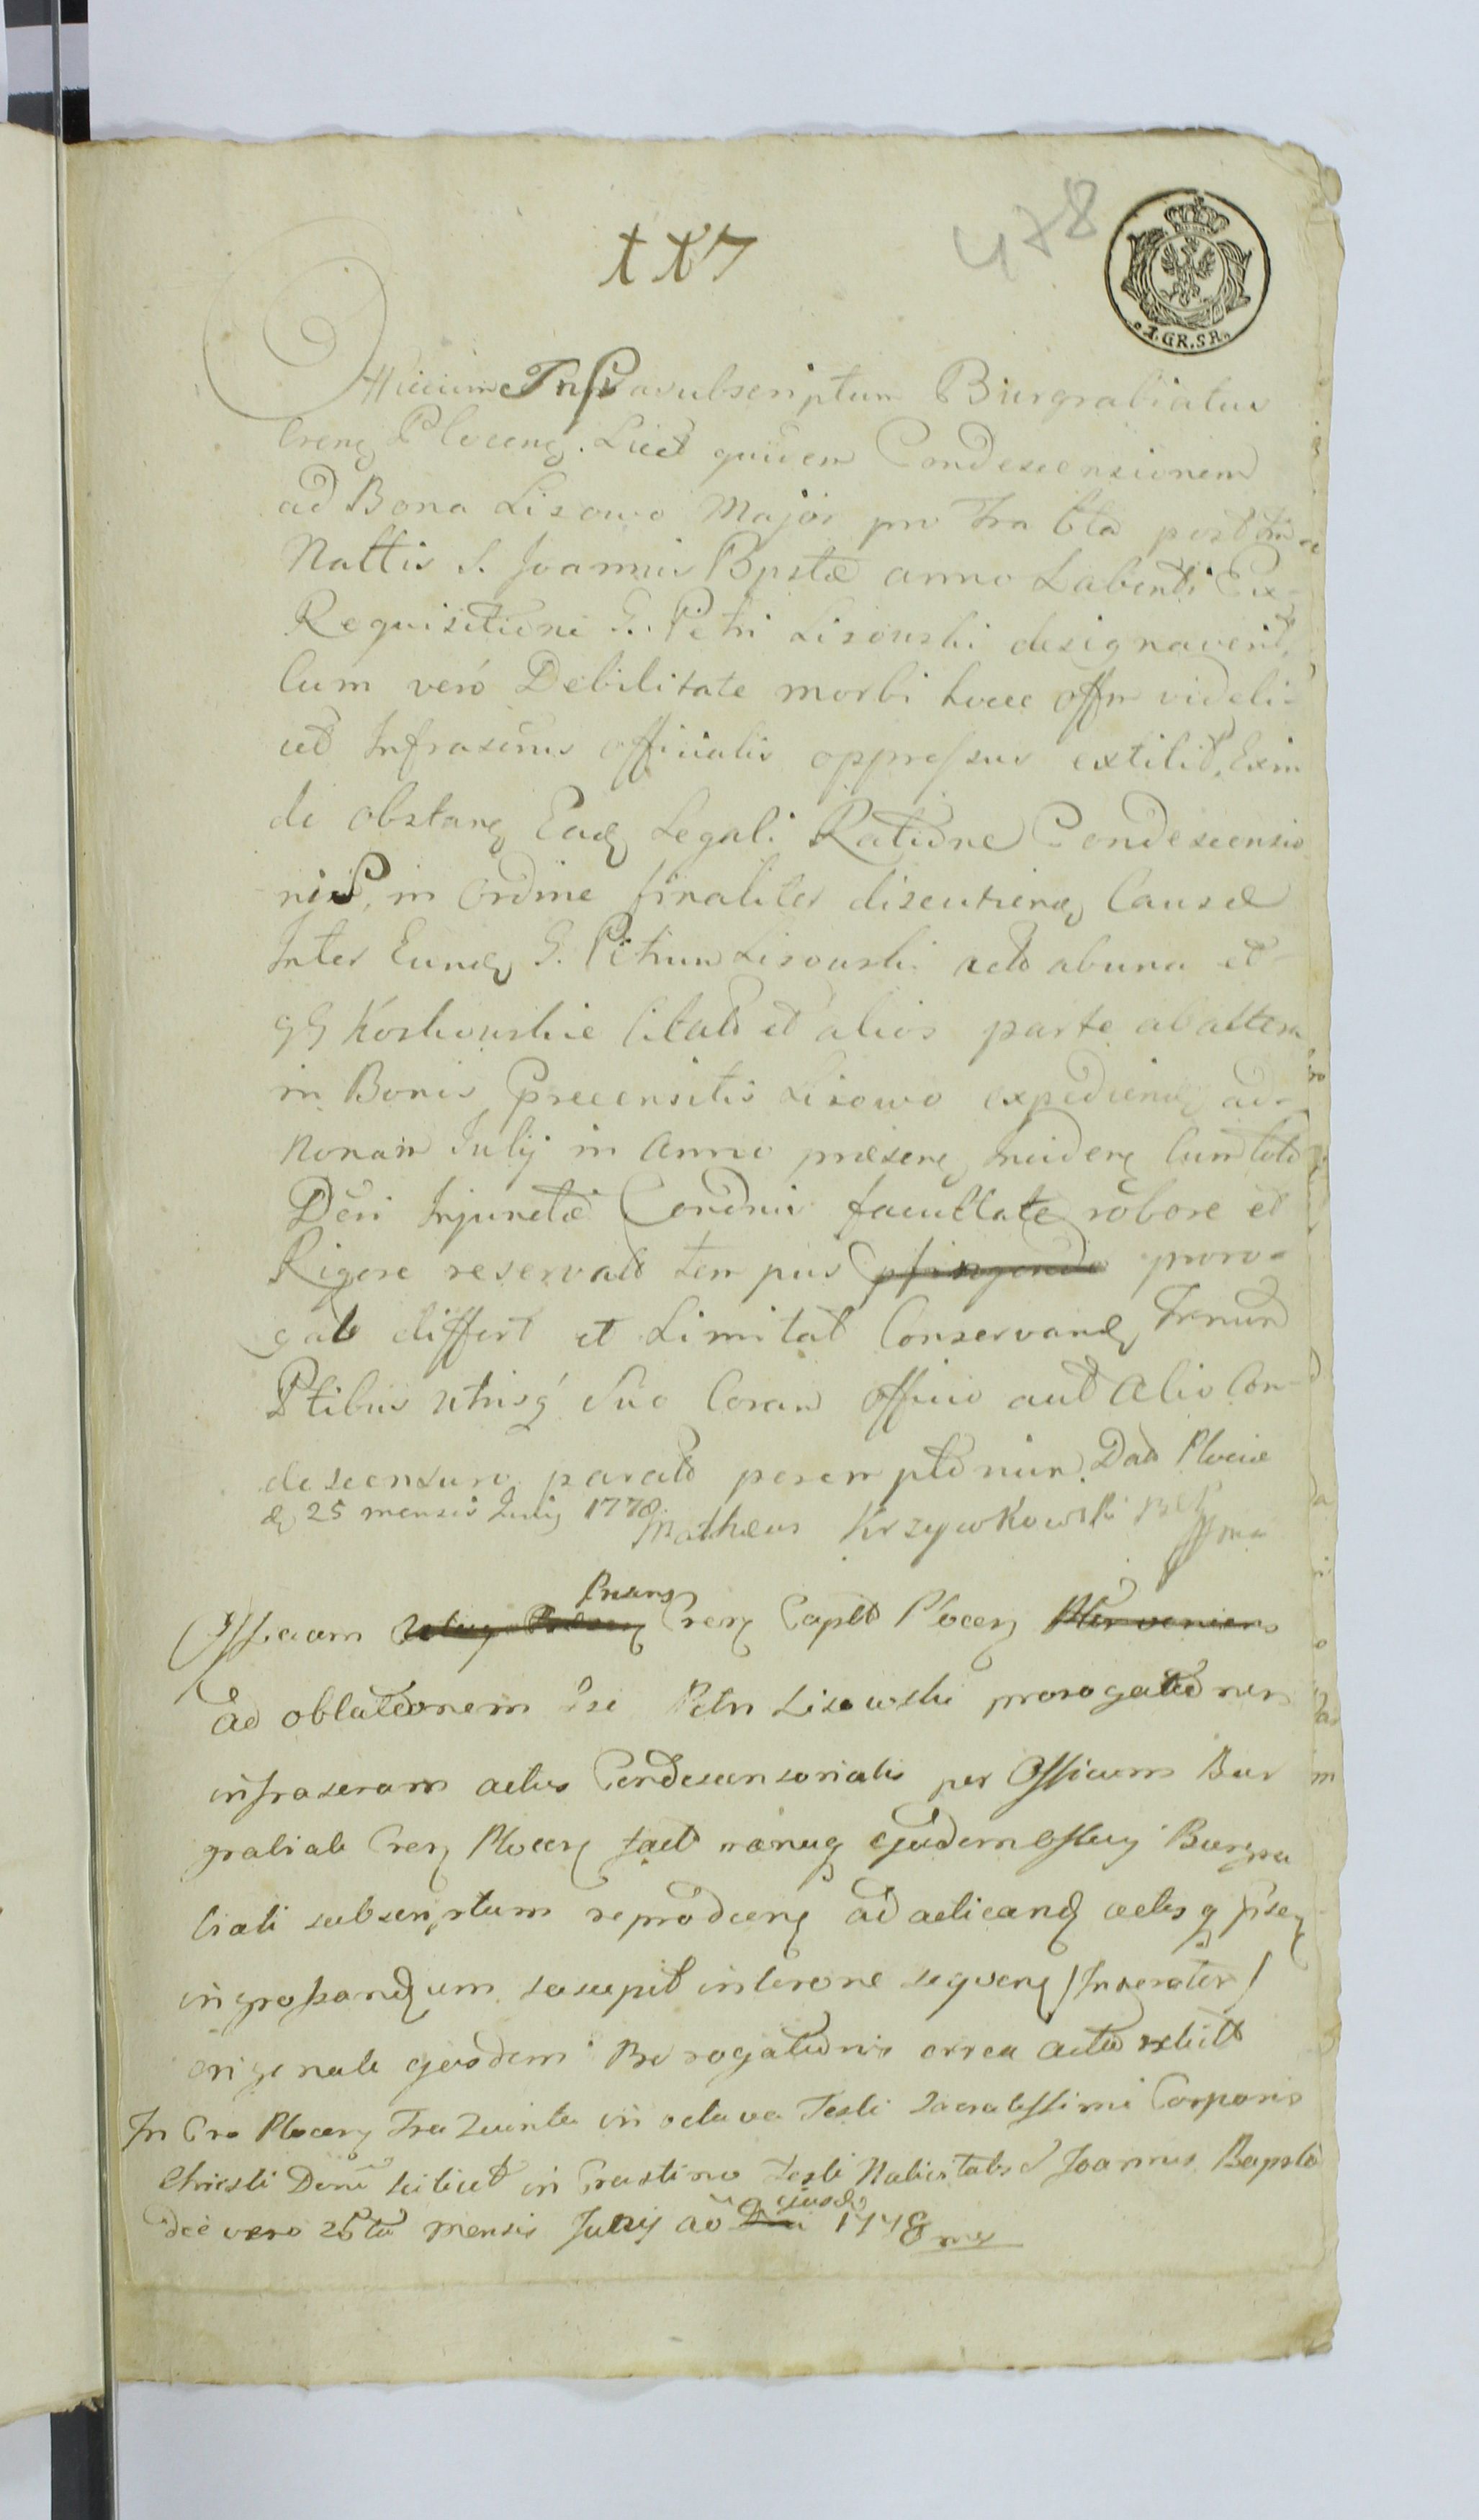 478
1.GR.SR.
Officium Infrasubscriptum Burgrabiatus
Cren Plocen. Licet quidem Condescensionem
ad Bona Lisowo Major pro fra 6ta post
Nattis S. Joannis Bpstæ anno Labenti Ex
Requisitione G. Petri Lisowski designaverit,
Cum veró Debilitate morbi hocce offm videli-
cet Infrascrius officialis oppressus extitit, Exin
de obstan Ead Legali Ratione Condescensio
nis, in Ordine finaliter discutiend Causæ
Inter Eund G. Petrum Lisowski acto abuna et
GG Koskowskie Citato et alios parte ab altera
in Bonis Precensitis Lisowo expediend ad
Nonam Julij in Anno præsen Inciden Cum tota
Dcri Injunctæ Condnis facultate robore et
Rigore reservato tempus proro-
gat differt et Limitat Conservand Trnum
Ptibus utrisq Suo Coram Officio aut Alio Con-
descensuro parato peremptorium. Dat Plociæ
d 25 mensis Junij 1778.
Matheus Krzywkowski
Officium Cren Capit Plocen
Ad oblationem Petri Lisowski prorogationem
infrascram actus Condescensorialis per Officium Bur
grabiale Cren Plocen fact manuq ejusdem Officij Burgra
bialis subscriptum reproducen ad acticand actisq psen
ingrossandum suscepit intenore sequen /Inseratur/
originale ejusdem Prorogationis circa acta relict
In Cro Plocen Fra Quinta in octava Festi Sacratissimi Corporis
Christi Dni scilicet in Crastino Festi Nativitatis S Joannis Bapstæ
die vero 25ta mensis Junij ao 1778